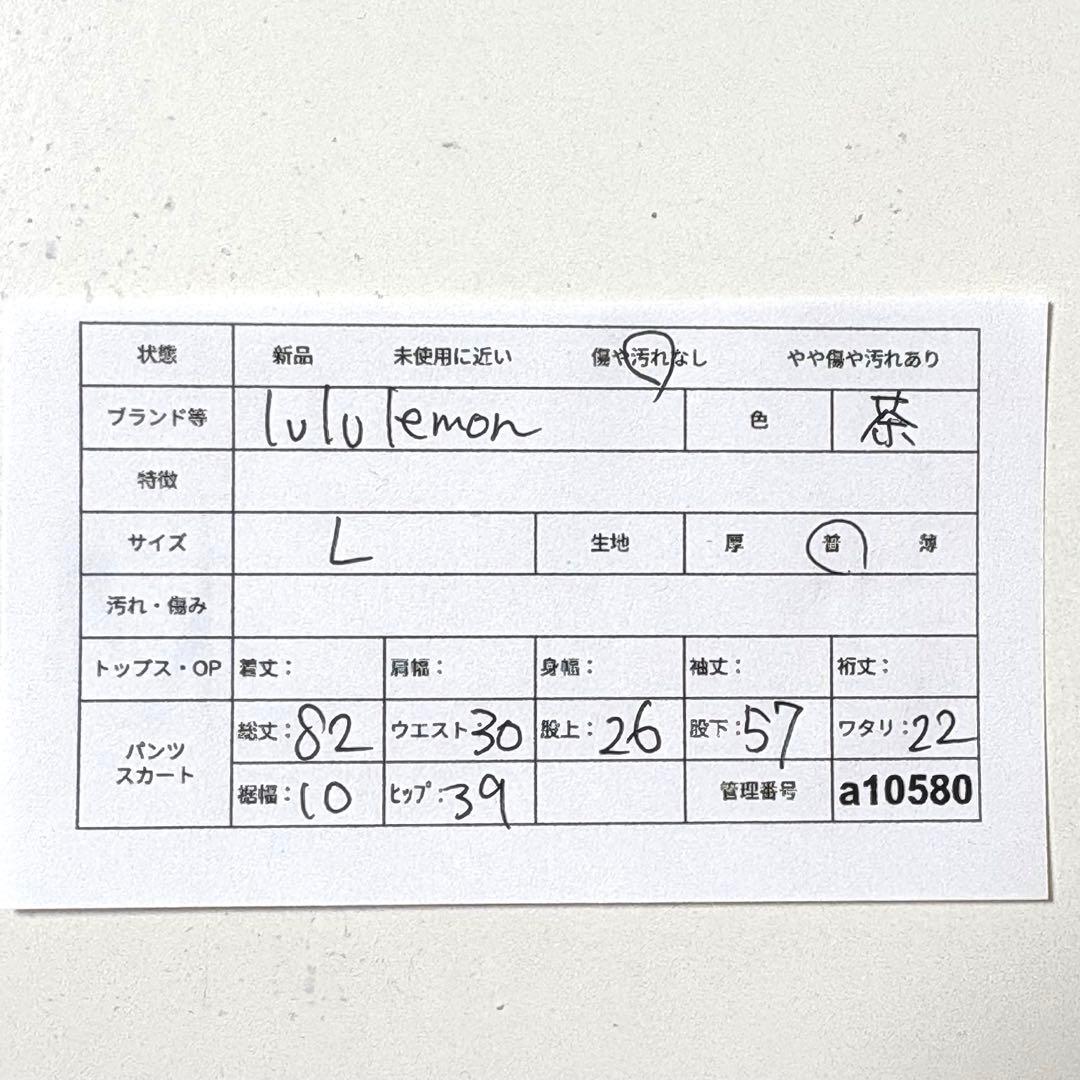 状態 新品 未使用に近い 傷や汚れなし やや傷や汚れあり
ブランド等 lululemon 色 茶
特徴
サイズ L 生地 厚 普 薄
汚れ・傷み
トップス・OP 着丈： 肩幅： 身幅： 袖丈： 裄丈：
パンツ スカート 総丈：82 ウエスト30 股上：26 股下：57 ワタリ：22
裾幅：10 ﾋｯﾌﾟ：39 管理番号 a10580